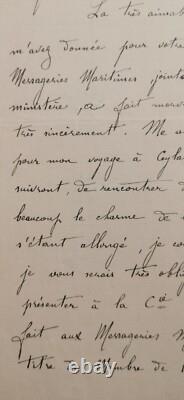 La très aimab
m'avez donnée pour votre
Messageries Maritimes, jointe
ministère, a fait
très sincèrement. Me
pour mon voyage à Ceyla
suivant, de rencontrer d
beaucoup le charme de
s'étant allongé, je co
je vous serais très obli
présenter à la Cie
fait aux Messageries M
titre de Membre de l